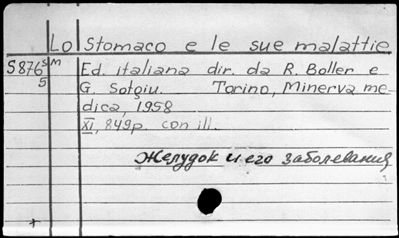 Lo Stomaco e le sue malattie
S876s M Ed. italiana dir. da R. Boller e
5 G. Sotgiu. Torino, Minerva me-
dica, 1958
XI, 849p. con ill.
Желудок и его заболевания